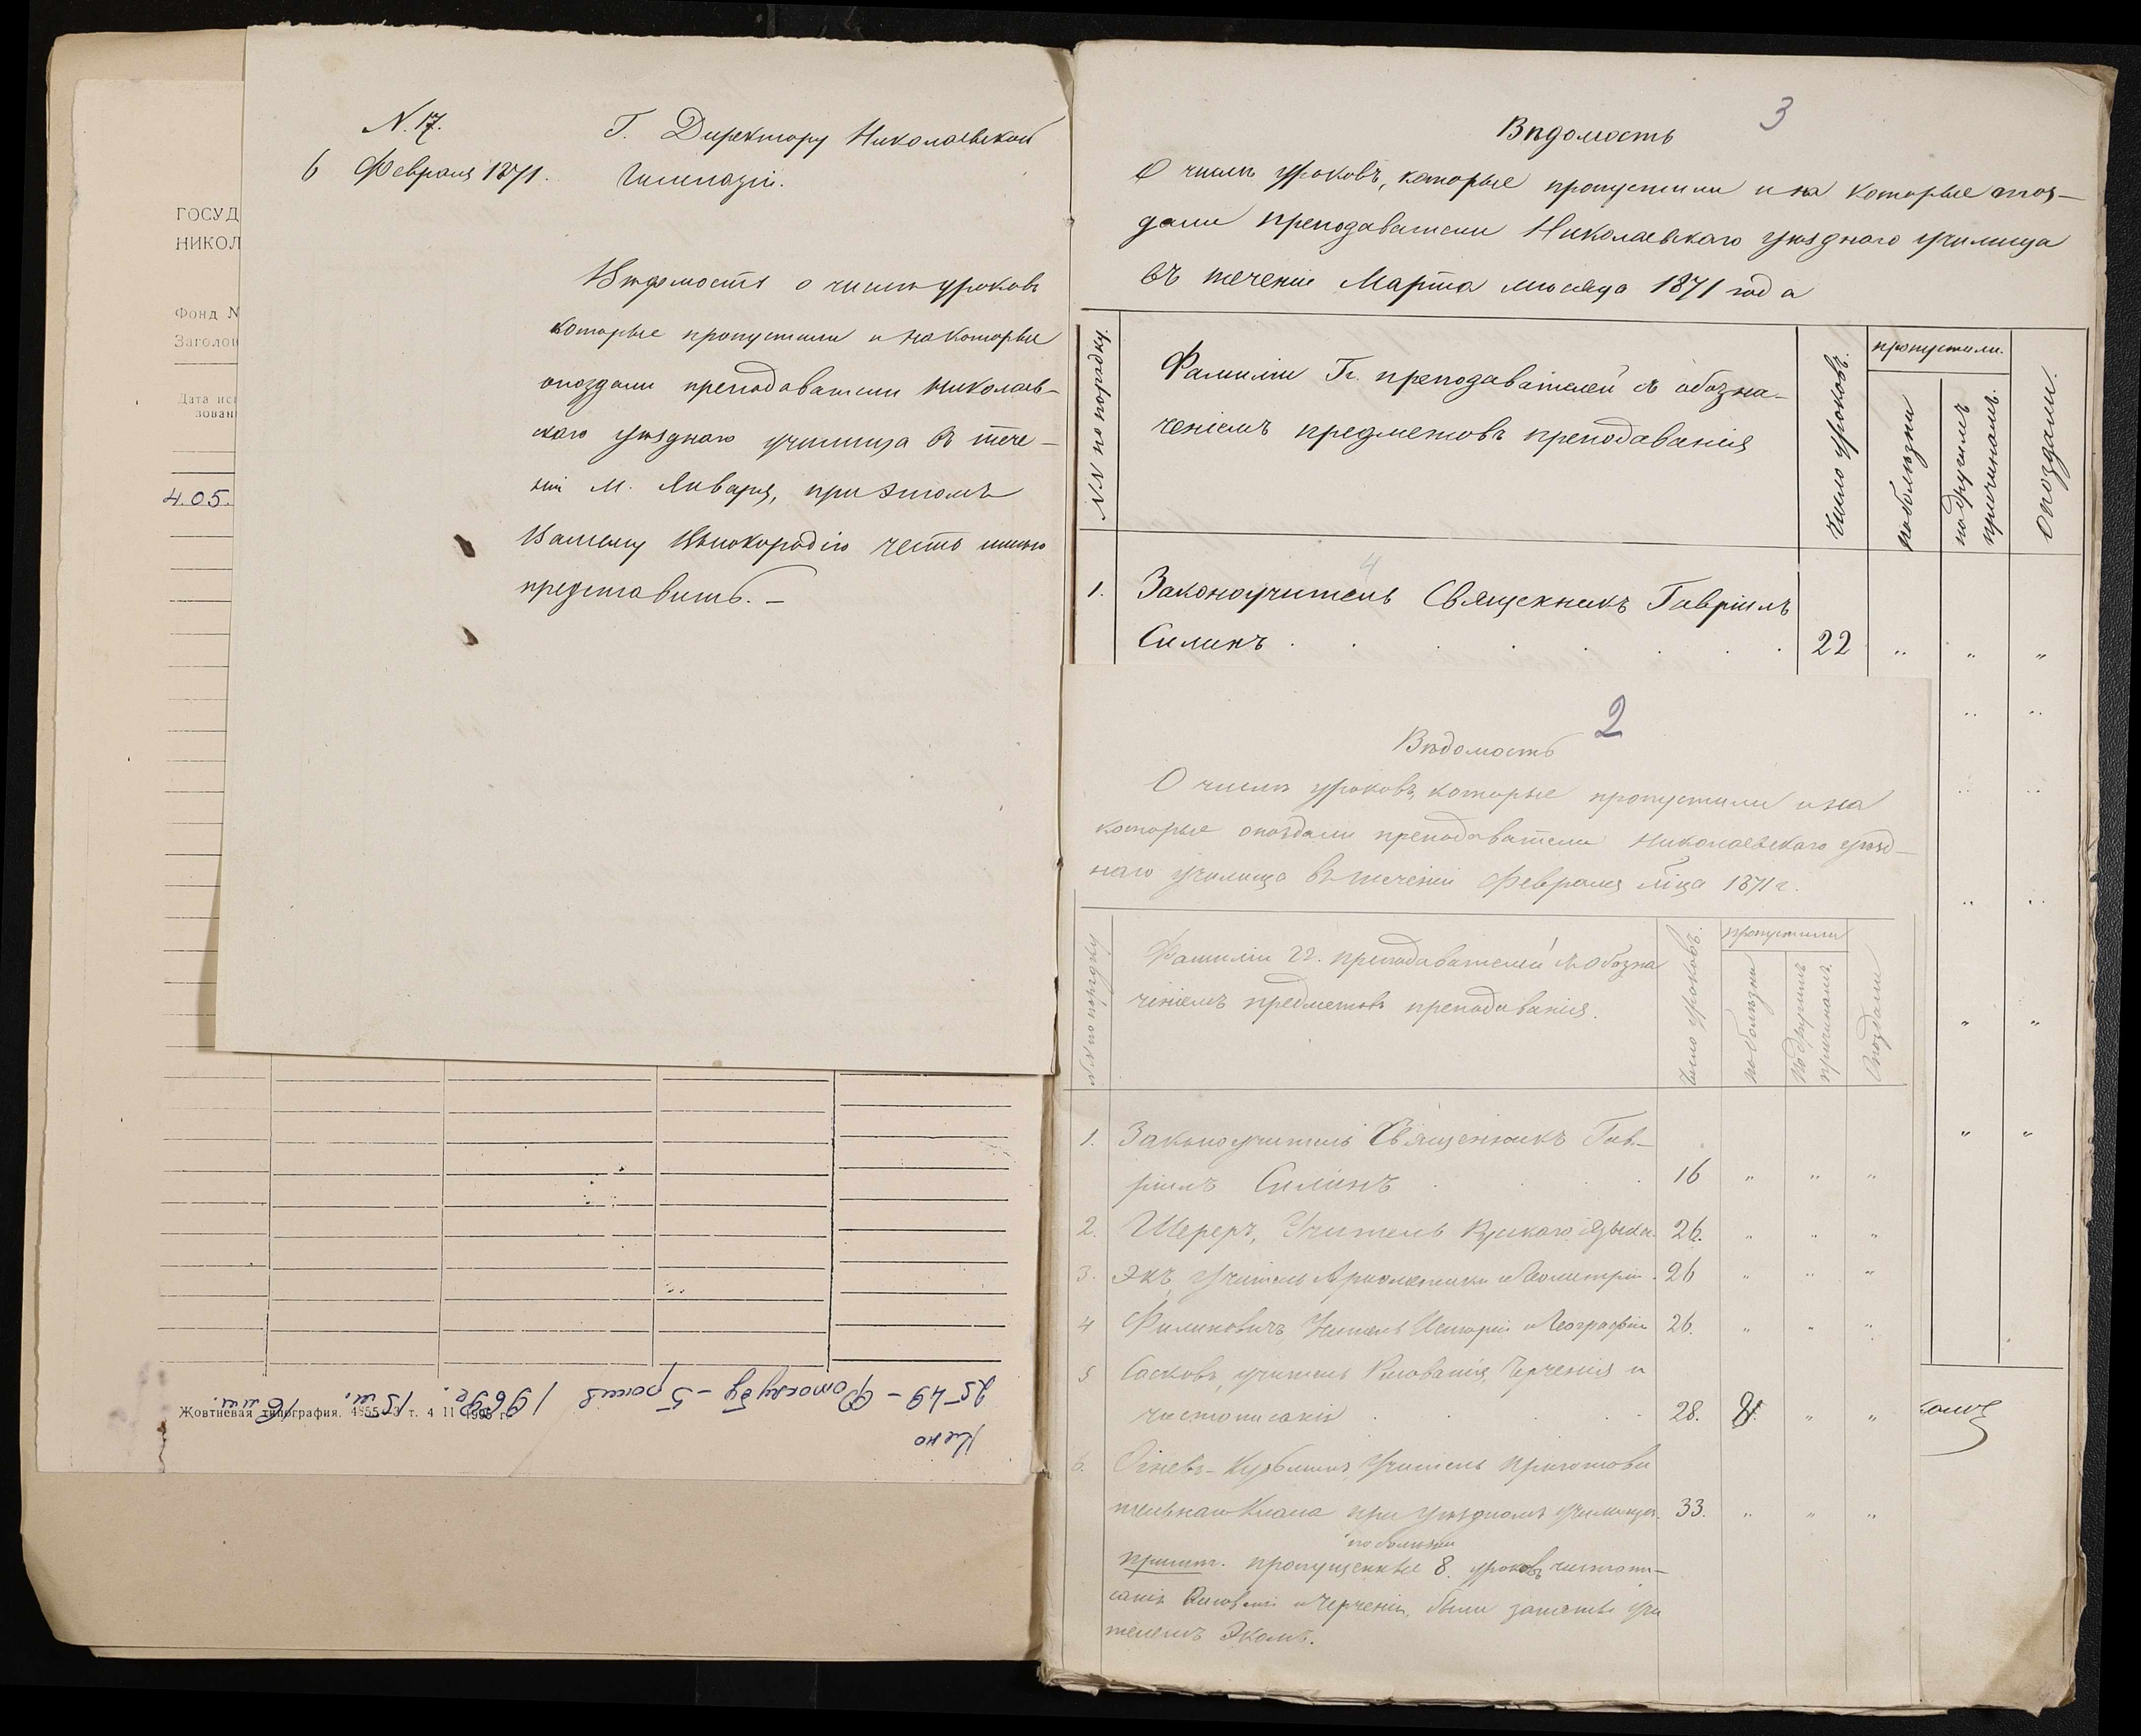 N. 17.
6 Февраля 1871.
Г. Директору Николаевской
Гимназіи.
Вѣдомость о числѣ уроковъ
которые пропустили и на которые
опоздали преподаватели Николаев-
скаго уѣзднаго училища въ тече-
ніи м. Января, при этомъ
Вашему Высокородію честь имѣю
представить. –
ГОСУД
НИКОЛ
Фонд N
Заголов
Дата исп
зован
4.05.
Жовтневая типография. 4855—3 т. 4 11 1965 г.
Кено
25-49 – Фотоклубу – 5 рамів 1969г. 15 ш. 16 мм.
3
Вѣдомость
О числѣ уроковъ, которые пропустили и на которые опоз-
дали преподаватели Николаевскаго уѣзднаго училища
въ теченіе Марта мѣсяца 1871 года
NN по порядку.
Фамиліи Гг. преподавателей съ обозна-
ченіемъ предметовъ преподаванія
Число уроковъ.
пропустили.
по болѣзни
по другимъ
причинамъ.
Опоздали.
4
1. Законоучитель Священникъ Гавріилъ
Силинъ . . . . . . . 22 „ „ „
2
Вѣдомость
О числѣ уроковъ, которые пропустили и на
которые опоздали преподаватели Николаевскаго уѣзд-
наго училища въ теченіи Февраля мѣца 1871 г.
NN по порядку
Фамиліи гг. преподавателей съ обозна
ченіемъ предметовъ преподаванія.
Число уроковъ.
пропустили
по болѣзни
По другимъ
причинамъ.
Опоздали
1. Законоучитель Священникъ Гав-
ріилъ Силинъ . . . 16 „ „ „
2. Шереръ, Учитель Русскаго языка. 26. „ „ „
3. Экъ, Учитель Ариѳметики и Геометріи . 26 „ „ „
4 Филиповичъ, Учитель Исторіи и Географіи 26. „ „ „
5 Сосковъ, учитель Рисованія, Черченія и
чистописанія . . . . . 28. 8. „ „
6. Огневъ-Кузьминъ, Учитель Приготови
тельнаго Класса при Уѣздномъ Училищѣ. 33. „ „ „
по болѣзни
Примѣч. пропущенные 8. уроковъ чистопи-
санія Рисованія и Черченія, были заняты учи
телемъ Экомъ.